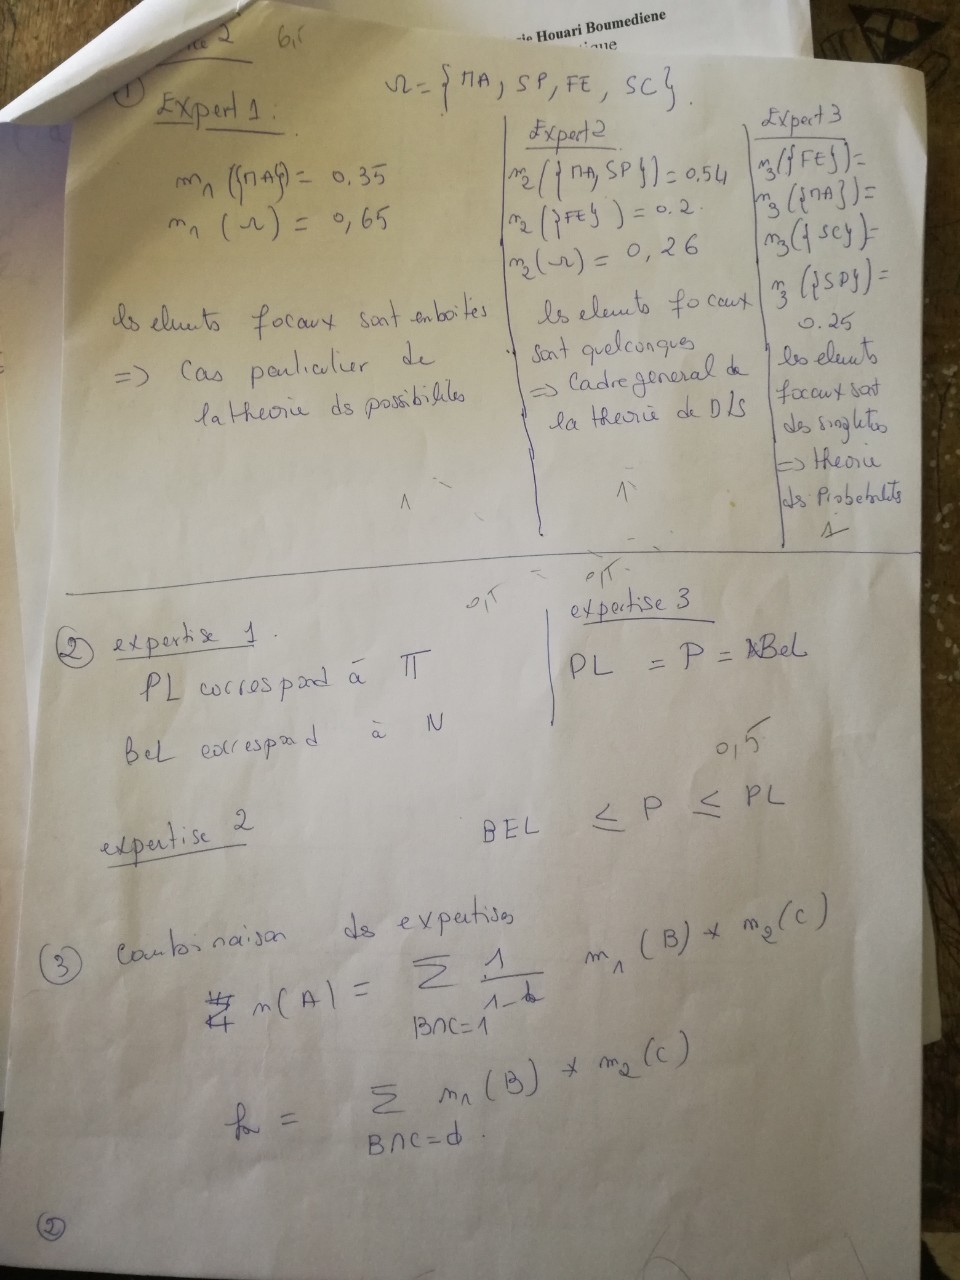 Houari Boumediene
ique
ice 2 6,5
Ω = {MA, SP, FE, SC}.
① Expert 1.
m₁({MA}) = 0,35
m₁(Ω) = 0,65
les elements focaux sont emboités
=> Cas particulier de
la theorie ds possibilités
1
Expert 2
m₂({MA, SP}) = 0.54
m₂({FE}) = 0.2.
m₂(Ω) = 0,26
les elements focaux
sont quelconques
=> Cadre general de
la theorie de D/S
1
Expert 3
m₃({FE}) =
m₃({MA}) =
m₃({SC}) =
m₃({SP}) =
0.25
les elements
focaux sont
des singletons
=> theorie
ds Probabilités
1
② expertise 1.
0,5
PL correspond à Π
Bel correspond à N
0,5
expertise 3
PL = P = Bel
0,5
expertise 2
BEL ≤ P ≤ PL
③ combinaison des expertises
m(A) = Σ 1/(1-k) m₁(B) * m₂(C)
B∩C=1
k = Σ m₁(B) * m₂(C)
B∩C=ɸ.
②